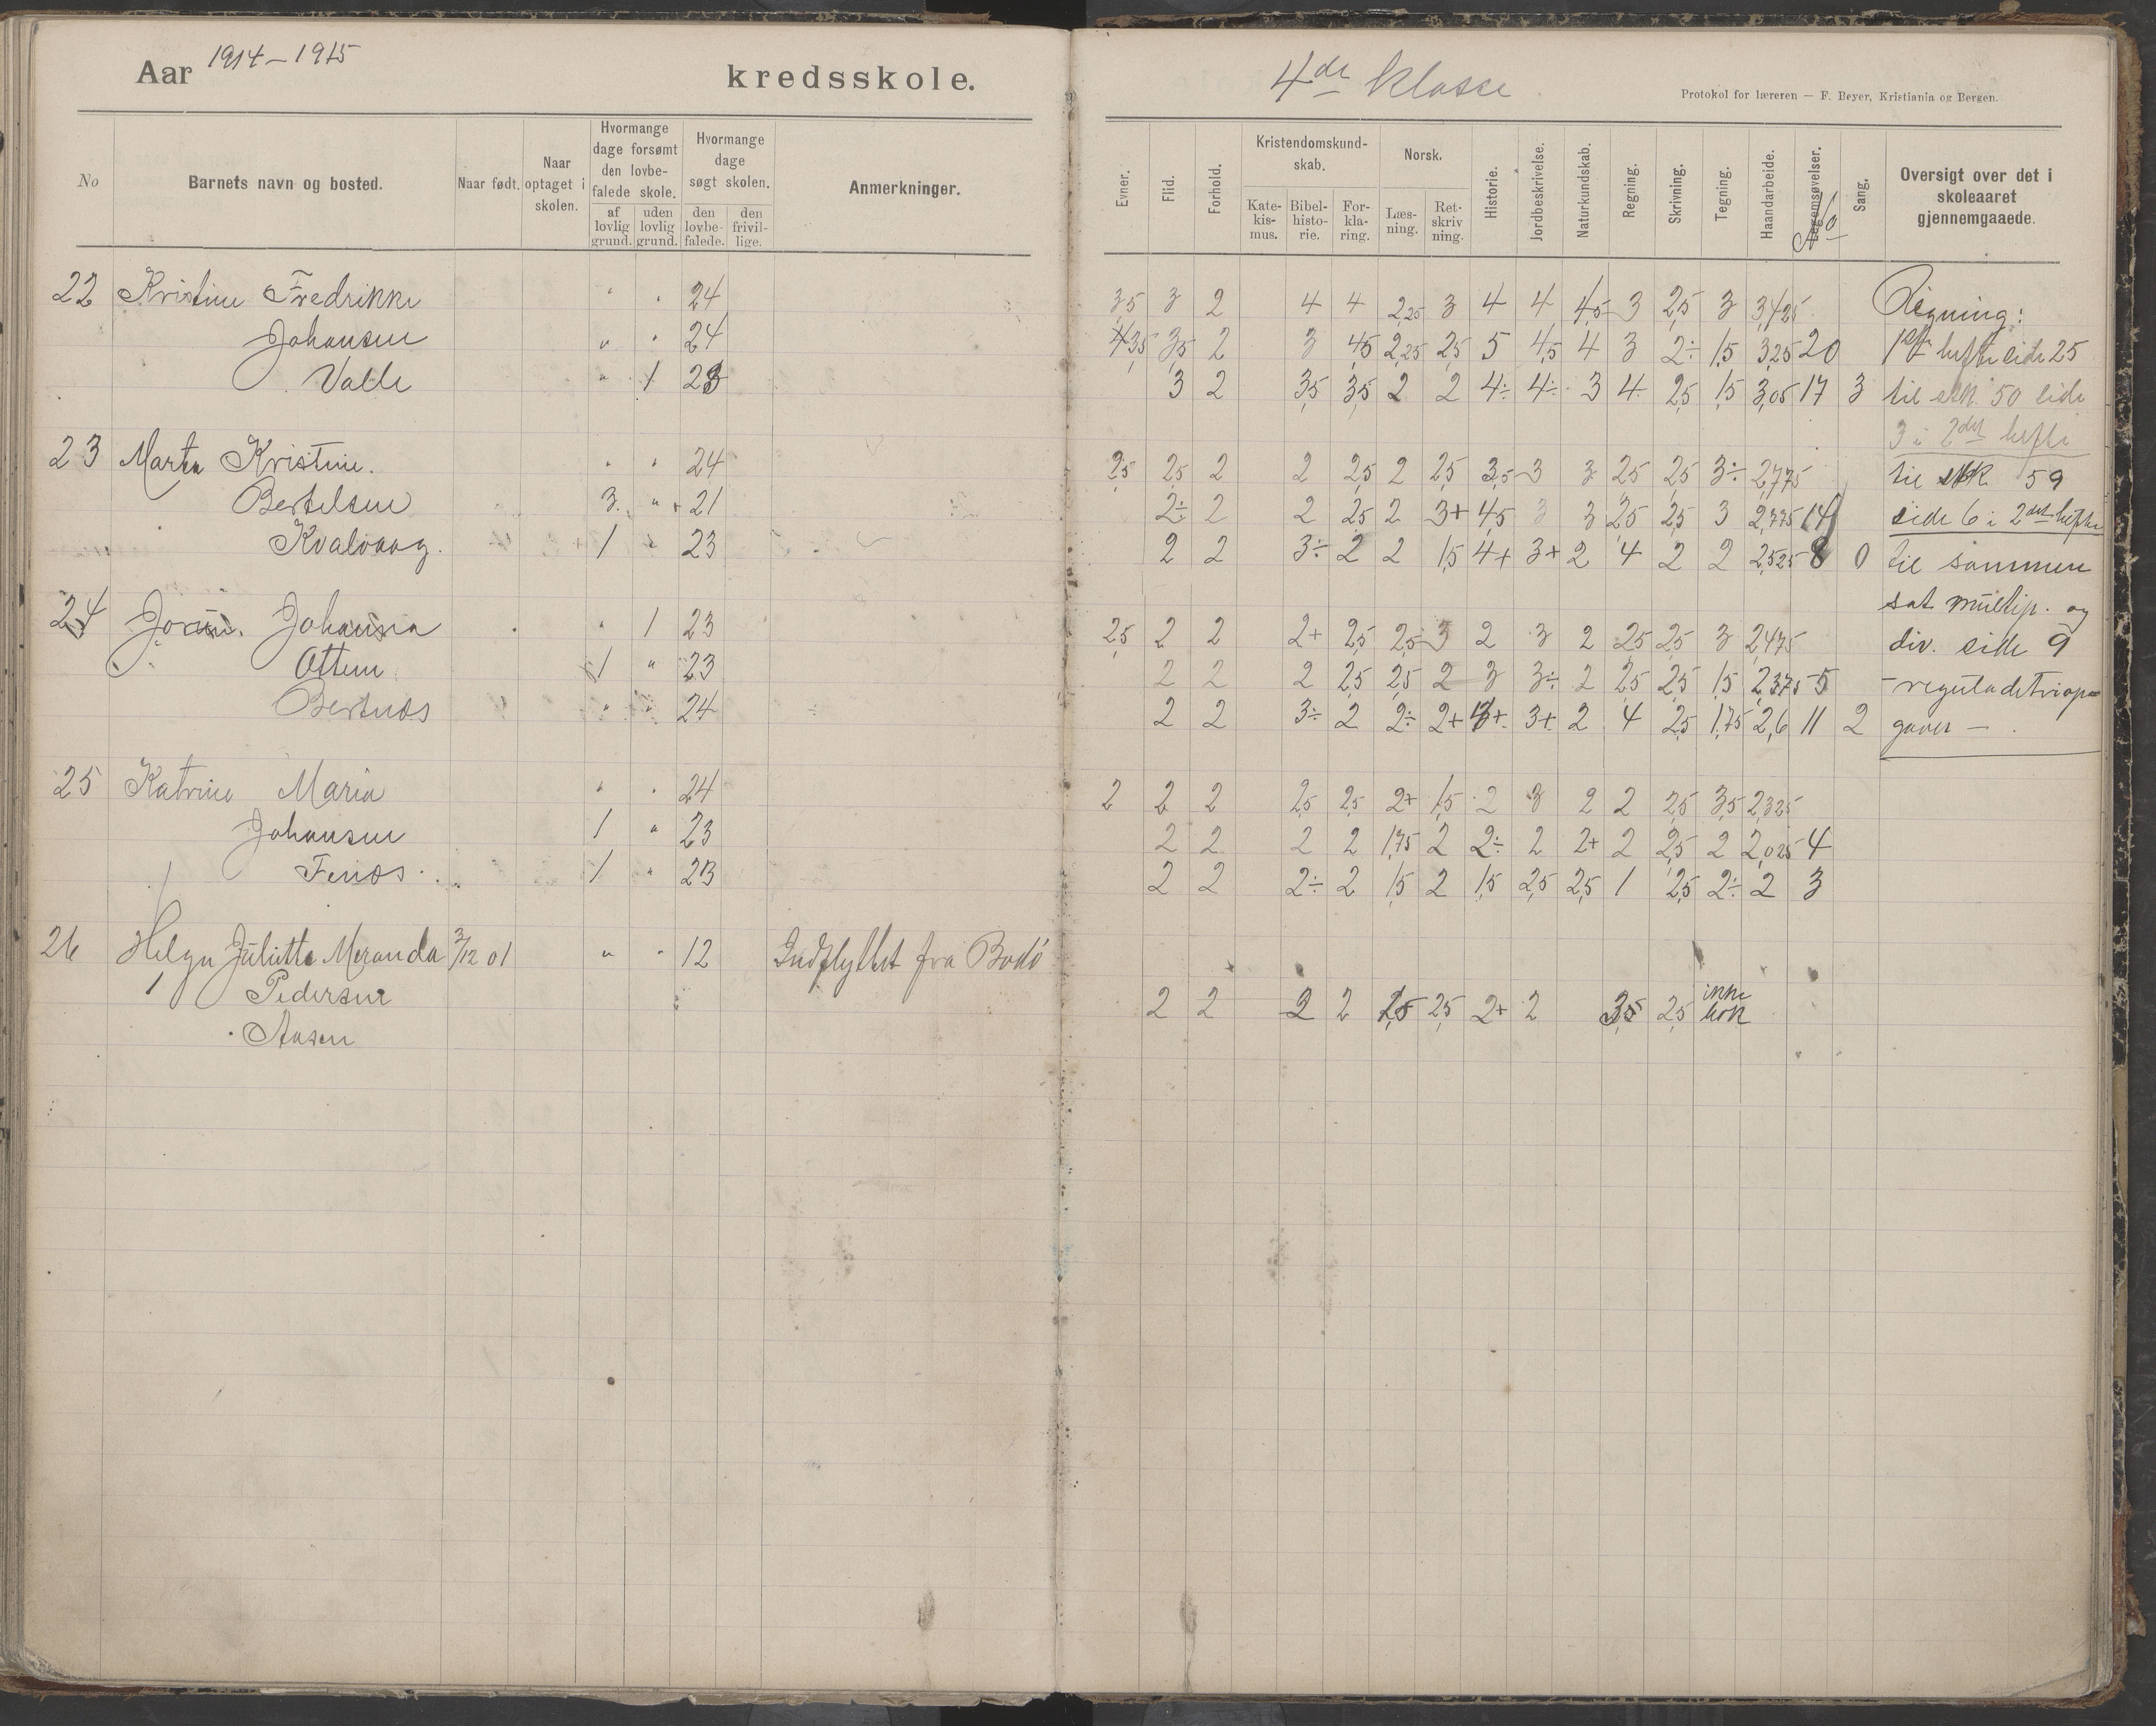 Aar 1914-1915 kredsskole.
No Barnets navn og bosted. Naar født. Naar optaget i skolen. Hvormange dage forsømt den lovbefalede skole. af lovlig grund. uden lovlig grund. Hvormange dage søgt skolen. den lovbefalede. den frivillige. Anmerkninger.
22 Kristine Fredrikke " " 24
Johansen " " 24
Valle " 1 23
23 Marta Kristine. " " 24
Bertelsen 3 " 21
Kvalvaag. 1 " 23
24 Johanna " 1 23
Ottem 1 " 23
Bertnæs " " 24
25 Katrine Maria " " 24
Johansen 1 " 23
Fenæs 1 " 23
26 Helga Juliitte Meranda 3/12 01 " " 12 Indflyttet fra Bodö
1 Pedersen
Aasen
4de klasse
Protokol for læreren — F. Beyer, Kristiania og Bergen.
Evner. Flid. Forhold. Kristendomskundskab. Katekismus. Bibelhistorie. Forklaring. Norsk. Læsning. Retskrivning. Historie. Jordbeskrivelse. Naturkundskab. Regning. Skrivning. Tegning. Haandarbeide. Legemsøvelser. No Sang. Oversigt over det i skoleaaret gjennemgaaede.
3,5 3 2 4 4 2,25 3 4 4 4,5 3 2,5 3 3,425 Regning:
3,5 3,5 2 3 4,5 2,25 2,5 5 4,5 4 3 2÷ 1,5 3,25 20 1ste hefte side 25
3 2 3,5 3,5 2 2 4÷ 4÷ 3 4 2,5 1,5 3,05 17 3 til stk. 50 side
3 i 2det hefte
2,5 2,5 2 2 2,5 2 2,5 3,5 3 3 2,5 2,5 3÷ 2,775 til stk 59
2÷ 2 2 2,5 2 3+ 4,5 3 3 2,5 2,5 3 2,775 14 side 6 i 2det hefte
2 2 3÷ 2 2 1,5 4+ 3+ 2 4 2 2 2,525 8 0 til sammen
sat multip. og
2,5 2 2 2+ 2,5 2,5 3 2 3 2 2,5 2,5 3 2,475 div. side 9
2 2 2 2,5 2,5 2 3 3÷ 2 2,5 2,5 1,5 2,375 5 - reguladetriopa
2 2 3÷ 2 2÷ 2+ 3+ 3+ 2 4 2,5 1,75 2,6 11 2 gaver —
2 2 2 2,5 2,5 2+ 1,5 2 3 2 2 2,5 3,5 2,325
2 2 2 2 1,75 2 2÷ 2 2+ 2 2,5 2 2,025 4
2 2 2÷ 2 1,5 2 1,5 2,5 2,5 1 2,5 2÷ 2 3
2 2 2 2 2,5 2,5 2+ 2 3,5 2,5 ikke
bok